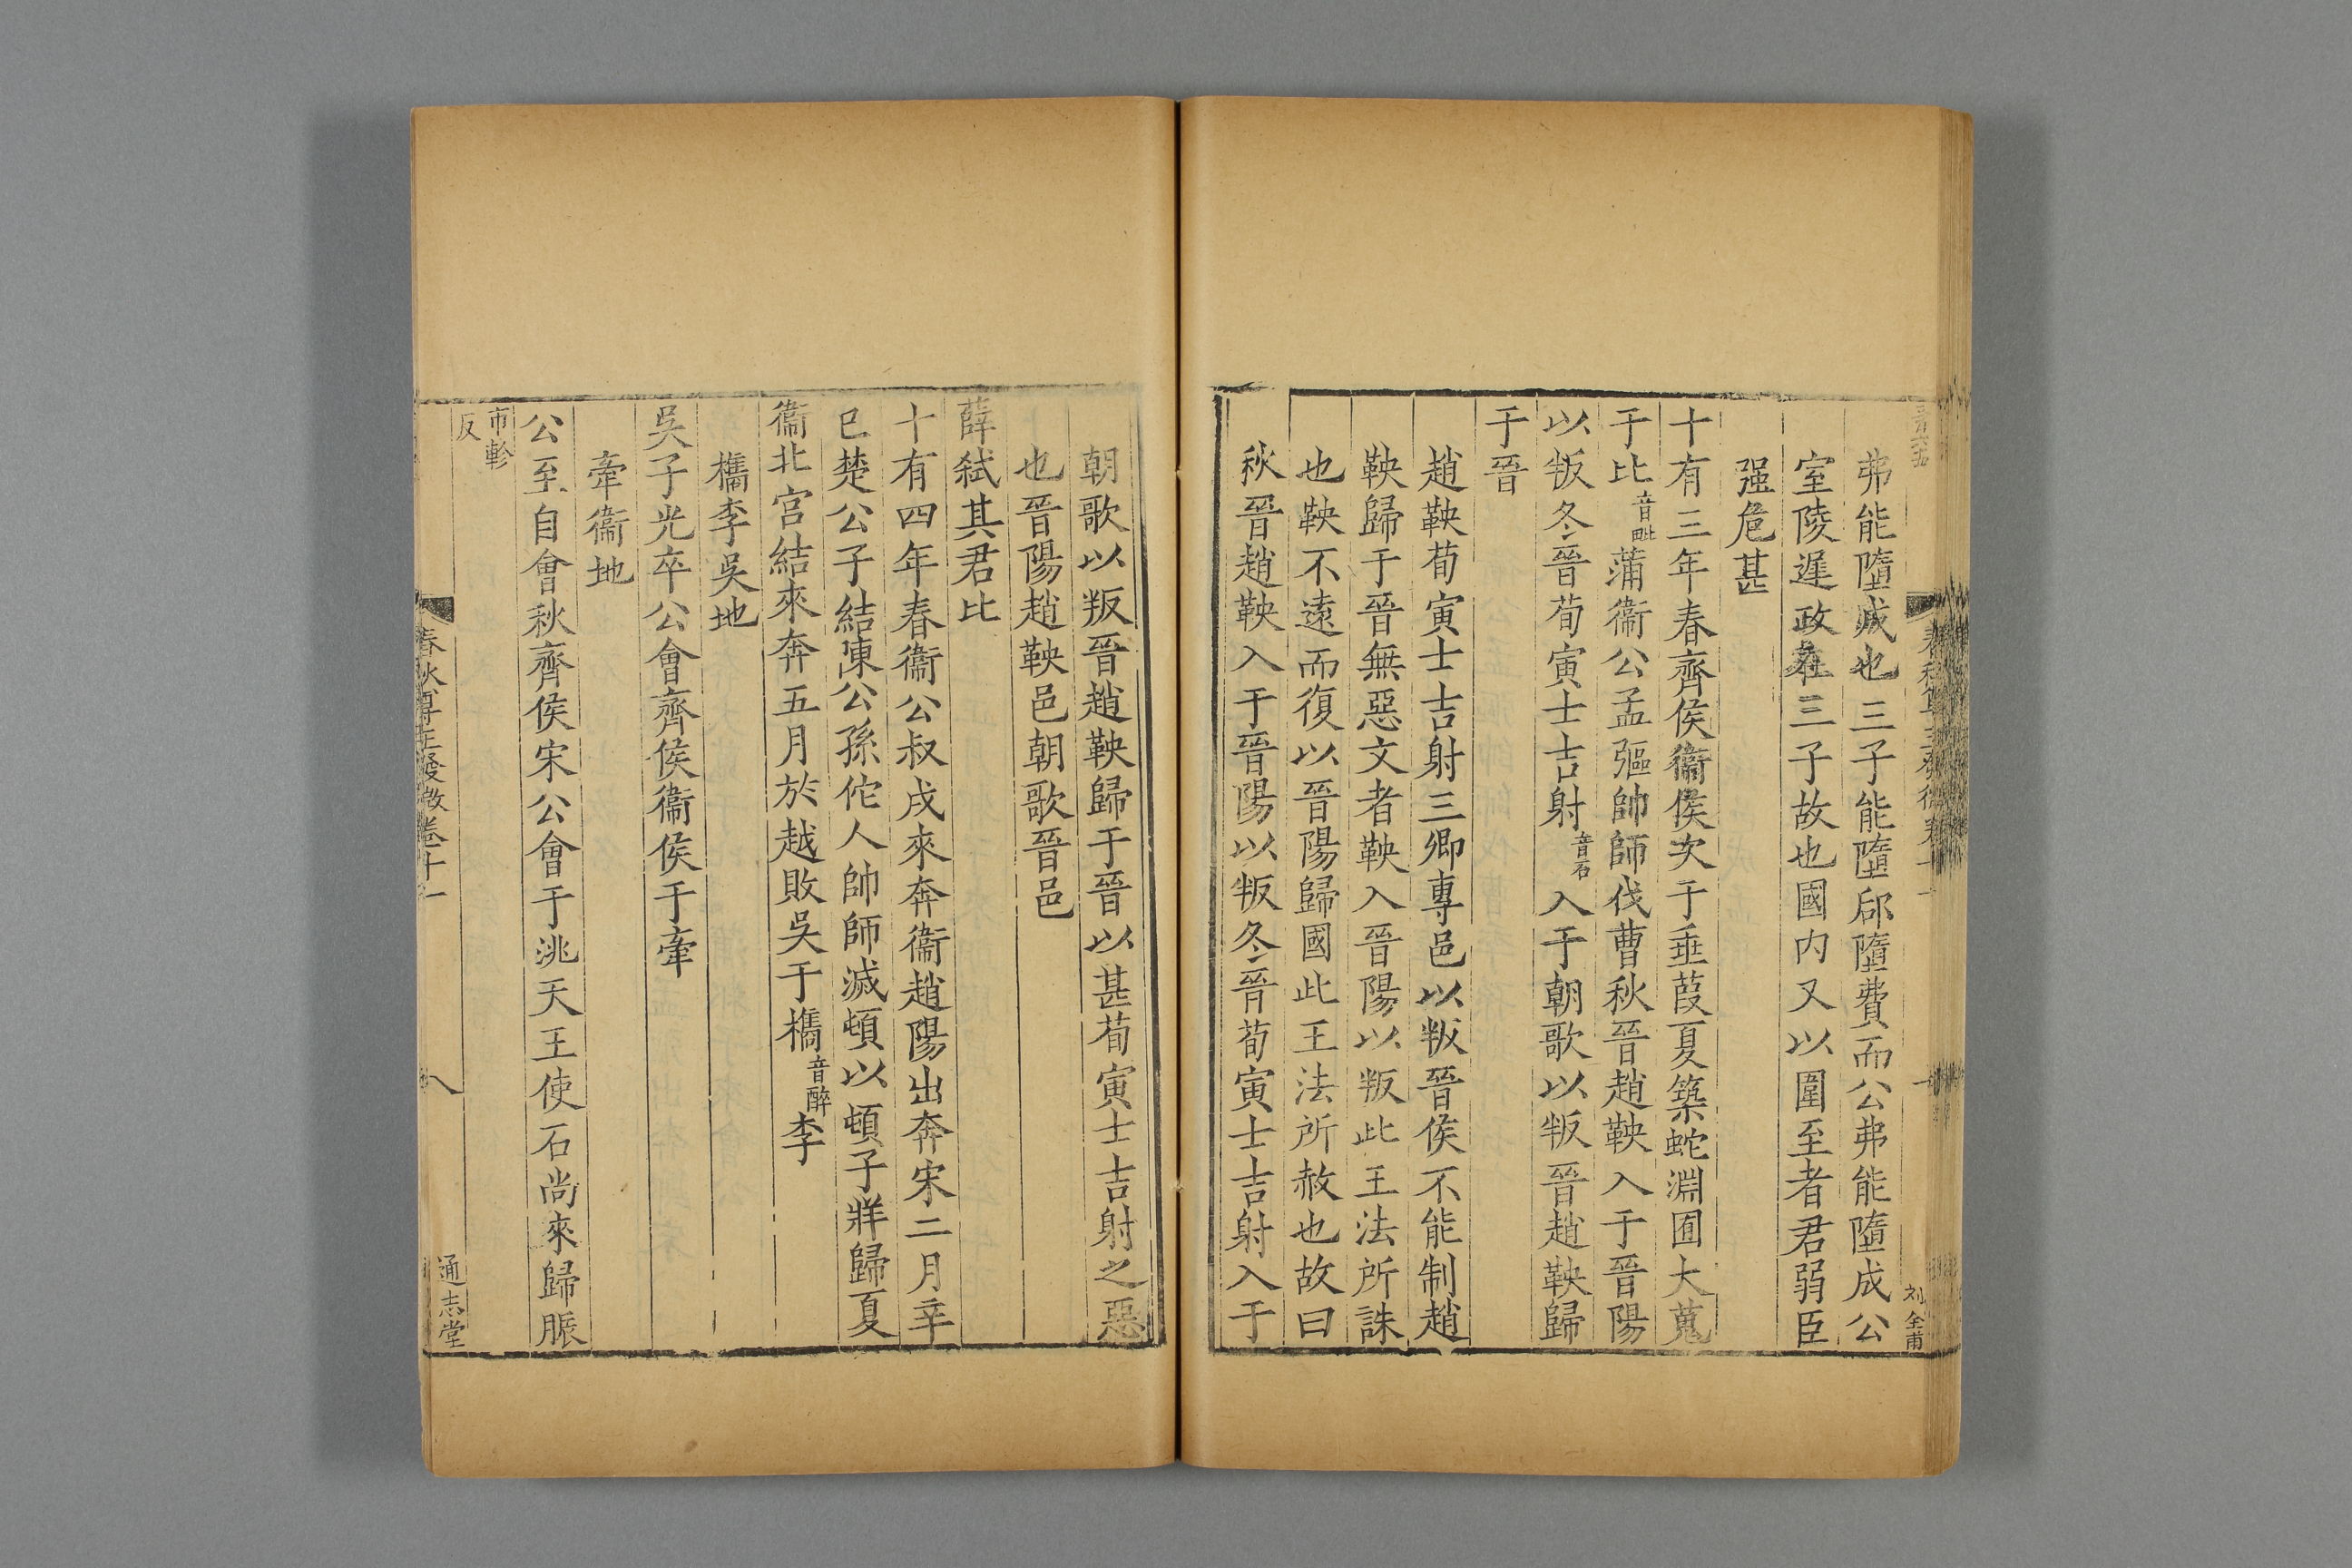 弗能墮成也三子能墮郈墮費而公弗能墮成公
室陵遲政在三子故也國内又以圍至者君弱臣
强危甚
十有三年春齊侯衞侯次于垂葭夏築蛇淵囿大蒐
于比音毗蒲衞公孟彄帥師伐曹秋晉趙鞅入于晉陽
以叛冬晉荀寅士吉射音石入于朝歌以叛晉趙鞅歸
于晉
趙鞅荀寅士吉射三卿專邑以叛晉侯不能制趙
鞅歸于晉無惡文者鞅入晉陽以叛此王法所誅
也鞅不遠而復以晉陽歸國此王法所赦也故曰
秋晉趙鞅入于晉陽以叛冬晉荀寅士吉射入于
刘全甫
朝歌以叛晉趙鞅歸于晉以甚荀寅士吉射之惡
也晉陽趙鞅邑朝歌晉邑
薛弑其君比
十有四年春衞公叔戌來奔衞趙陽出奔宋二月辛
巳楚公子結陳公孫佗人帥師滅頓以頓子牂歸夏
衞北宮結來奔五月於越敗吳于檇音醉李
檇李吳地
吳子光卒公會齊侯衞侯于牽
牽衞地
公至自會秋齊侯宋公會于洮天王使石尚來歸脤
市軫
反
春秋尊王發微卷十一
八
通志堂